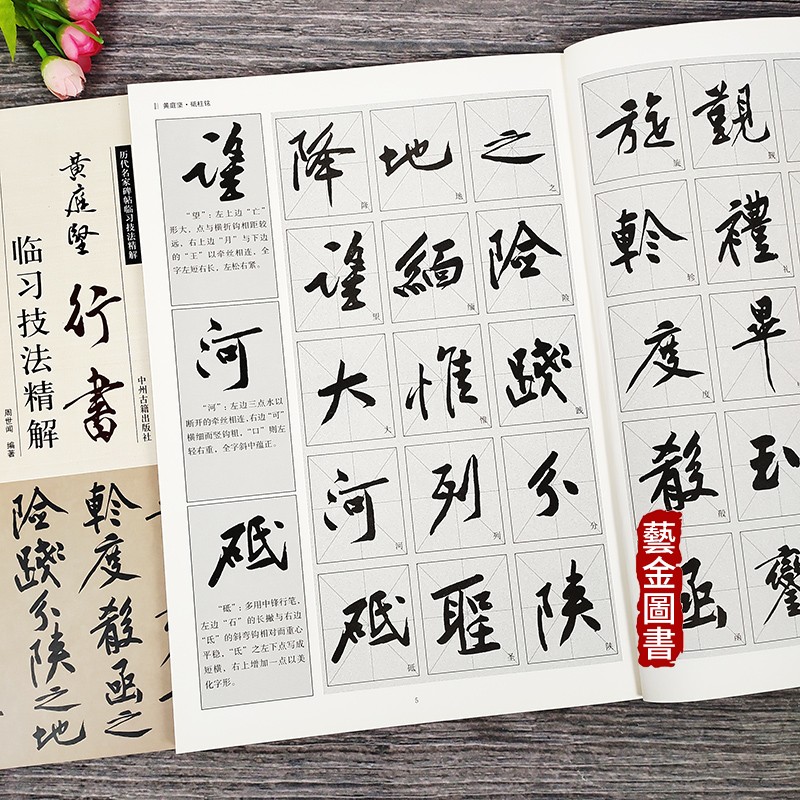 历代名家碑帖临习技法精解
黄庭堅
行書
临习技法精解
中州古籍出版社
周世闻 编著
軫度殽函之
險踐分陝之地
黄庭坚·砥柱铭
望
“望”：左上边“亡”
形大，点与横折钩相距较
远，右上边“月”与下边
的“王”以牵丝相连，全
字左短右长，左松右紧。
河
“河”：左边三点水以
断开的牵丝相连，右边“可”
横细而竖钩粗，“口”则左
轻右重，全字斜中蕴正。
砥
“砥”：多用中锋行笔，
左边“石”的长撇与右边
“氐”的斜弯钩相对而重心
平稳，“氐”之左下点写成
短横，右上增加一点以美
化字形。
降 地 之
降 地 之
望 緬 險
缅 险
大 惟 踐
大 惟 践
河 列 分
河 列 分
砥 聖 陝
砥 圣 陕
5
旋 覲
旋 觐
軫 禮
轸 礼
度 畢
度
殽 玉
殽
函 鑾
函
藝金圖書